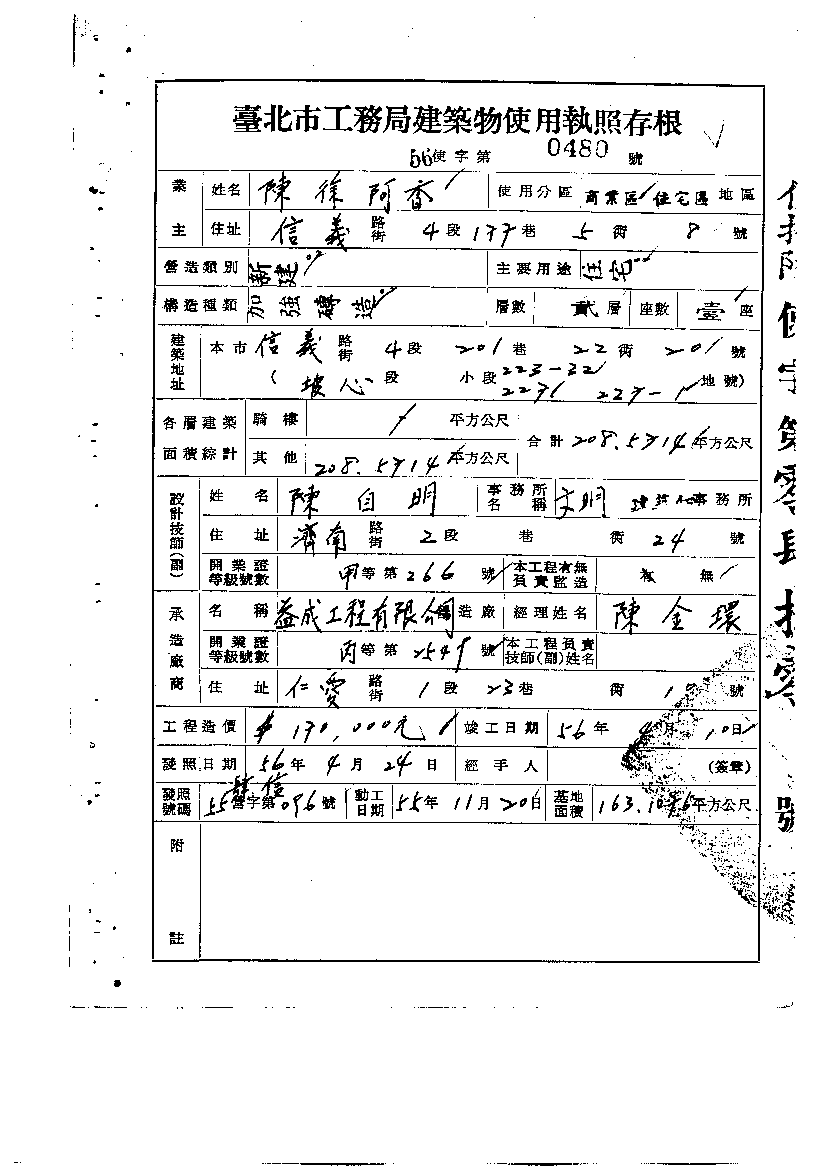 臺北市工務局建築物使用執照存根
56使字第 0480 號
業主 姓名 陳徐阿香 使用分區 商業區 住宅區 地區
住址 信義 路街 4段 177巷 5衖 8號
營造類別 新建 主要用途 住宅
構造種類 加強磚造 層數 貳層 座數 壹座
建築地址 本市 信義 路街 4段 201巷 22衖 201號
(坡心段 小段 223-32 227-1 地號)
各層建築面積綜計 騎樓 / 平方公尺 合計 208.5714 平方公尺
其他 208.5714 平方公尺
設計技師(副) 姓名 陳自明 事務所名稱 文明 建築師事務所
住址 濟南 路街 2段 巷 衖 24號
開業證等級號數 甲等第266號 本工程有無負責監造 有 無
承造廠商 名稱 益成工程有限公司 造廠 經理姓名 陳金環
開業證等級號數 丙等第 號 本工程負責技師(副)姓名
住址 仁愛 路街 1段 23巷 衖 1 號
工程造價 170,000元 竣工日期 56年 4月 10日
發照日期 56年4月24日 經手人 (簽章)
發照號碼 55營字第096號 動工日期 55年11月20日 基地面積 平方公尺
附註
使字第零
號